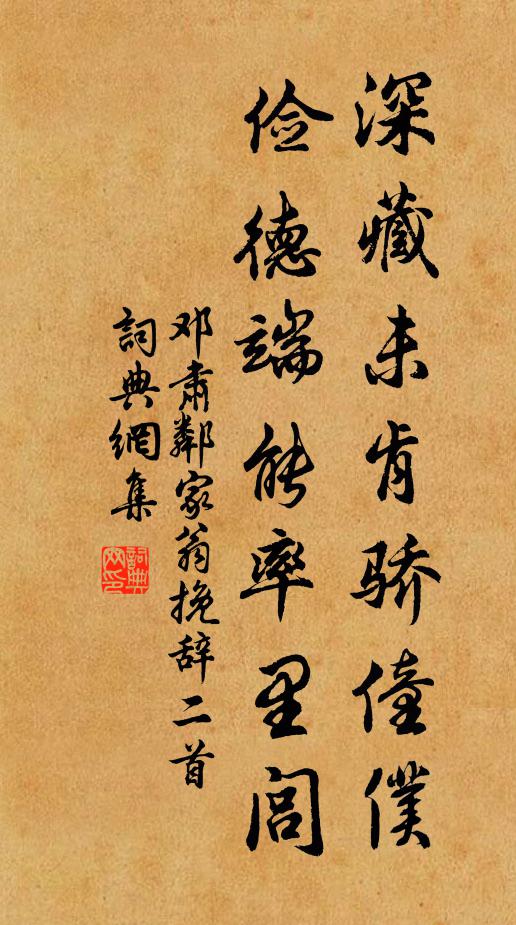 深藏未肯骄僮僕
俭德端能率里闾
邓肃鄰家翁挽辞二首
詞典網集
詞典網印